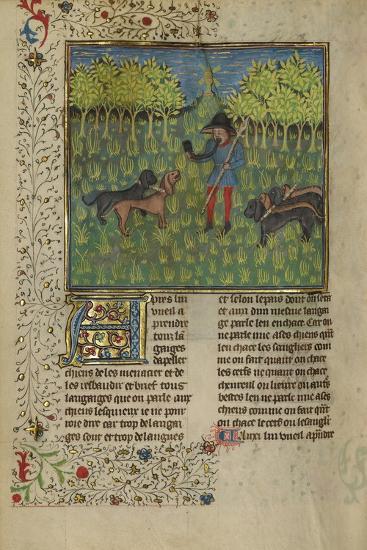 Apres lui
vueil a
prendre
tout la
gaiges
dapeller
chiens de les menacier et de
les resbaudir et brief tous
langaiges que on parle aux
chiens lesquieux ie ne pour
roie dire car trop de langua
ges sont et trop de langues
et selon le pais dont on seta
et aux dun mesme langai
ge parle len en chace Car on
ne parle mie a ses chiens quant
len chace les sengliers com
me on fait quant on chace
les cerfs ne quant on chace
cheureul ou lieure ou autres
bestes len ne parle mie a ses
chiens comme on fait quant
on chace le cerf ou le sanglier
Celui lui vueil aprendre